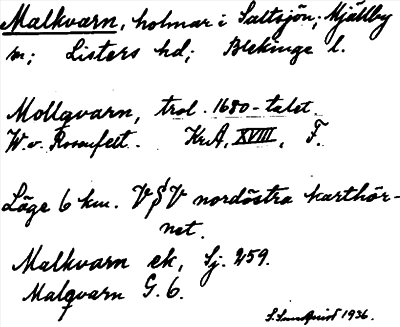 Malkvarn, holmar i Saltsjön; Mjällby
sn; Listers hd; Blekinge l.
Mollqvarn, trol. 1680-talet.
W. v. Rosenfelt. Kr.A. XVIII, F.
Läge 6 km. V§V nordöstra karthör-
net.
Malkvarn ek, Sj. 259.
Malqvarn G. 6.
S. Sundquist 1936.